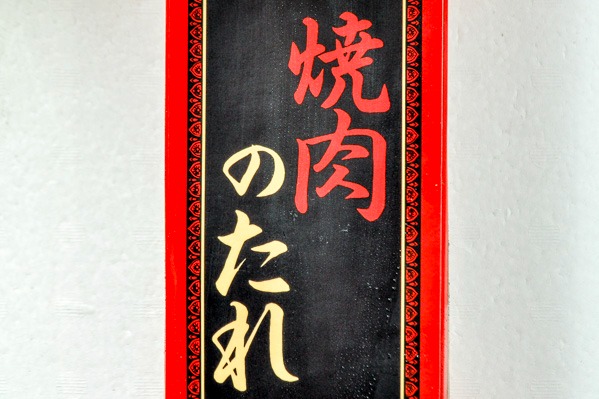 焼肉
のたれ